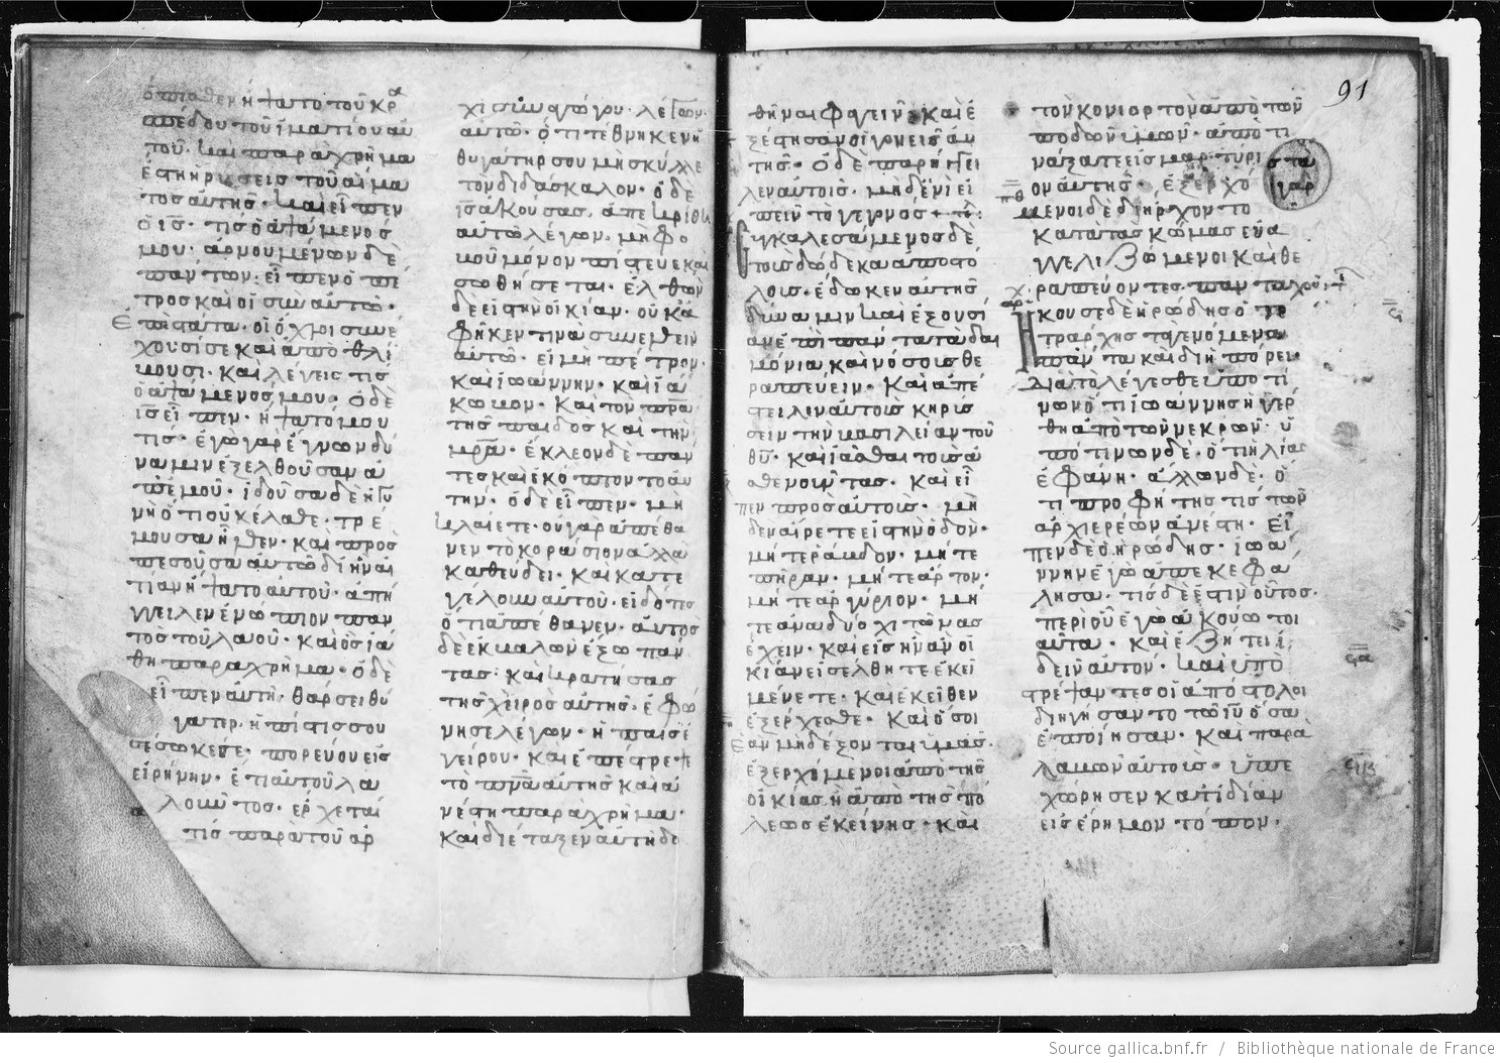 ὄπισθεν ἥψατο τοῦ κρα
σπέδου τοῦ ἱματίου αὐ
τοῦ· καὶ παραχρῆμα
ἔστη ἡ ρύσεις τοῦ αἵμα
τοσ αὐτῆσ· καὶ εἶπεν
ὁ ις· τίσ ὁ ἁψάμενοσ
μου· ἀρνουμένων δὲ
πάντων· εἶπεν ὁ πέ
τροσ καὶ οἱ σὺν αὐτῶ·
ἐπιστάτα· οἱ ὄχλοι συνέ
χουσί σε καὶ ἀποθλί
βουσι· καὶ λέγεις τίσ
ὁ ἁψάμενόσ μου· ὁ δὲ
ις εἶπεν· ἥψατό μου
τίσ· ἐγὼ γὰρ ἔγνων δύ
ναμιν ἐξελθοῦσαν ἀ
π' ἐμοῦ· ἰδοῦσα δὲ ἡ γυ
νὴ ὅτι οὐκ ἔλαθε· τρέ
μουσα ἦλθεν· καὶ προσ
πεσοῦσα αὐτῶ δι' ἣν αἰ
τίαν ἥψατο αὐτοῦ· ἀπή
γγειλεν ἐνώπιον παν
τὸσ τοῦ λαοῦ· καὶ ὡσ ἰά
θη παραχρῆμα· ὁ δὲ
εἶπεν αὐτῆ· θάρσει θύ
γατερ· ἡ πίστισ σου
σέσωκέ σε· πορεύου εἰς
εἰρήνην· ἔτι αὐτοῦ λα
λοῦντοσ· ἔρχεταί
τίσ παρὰ τοῦ ἀρ
χισυναγώγου· λέγων
αὐτῶ· ὅτι τέθνηκεν ἡ
θυγάτηρ σου μὴ σκύλλε
τὸν διδάσκαλον· ὁ δὲ
ις ἀκούσας, ἀπεκρίθη
αὐτῶ λέγων· μὴ φο
βοῦ μόνον πίστευε καὶ
σωθήσεται· ἐλθὼν
δὲ εἰσ τὴν οἰκίαν· οὐκ ἀ
φῆκεν τινὰ συνελθεῖν
αὐτῶ· εἰ μὴ πέτρον·
καὶ ἰωάννην· καὶ ἰά
κωβον· καὶ τὸν πρα
τῆσ παιδὸσ καὶ τὴν
μρα· ἔκλεον δὲ πάν
τεσ καὶ ἐκόπτοντο αὐ
τήν· ὁ δὲ εἶπεν· μὴ
κλαίετε· οὐ γὰρ ἀπέθα
νεν τὸ κοράσιον ἀλλὰ
καθεύδει· καὶ κατε
γέλουν αὐτοῦ· εἰδότεσ
ὅτι ἀπέθανεν· αὐτὸσ
δὲ ἐκβαλὼν ἔξω πάν
τας· καὶ κρατήσασ
τῆσ χειρὸσ αὐτῆσ· ἐφώ
νησε λέγων· ἡ παῖσ ἐ
γείρου· καὶ ἐπέστρεψε
τὸ πνα αὐτῆσ καὶ ἀ
νέστη παραχρῆμα·
καὶ διέταξεν αὐτῆ δο
θῆναι φαγεῖν· καὶ ἐ
ξέστησαν οἱ γονεῖσ αὐ
τῆσ· ὁ δὲ παρήγγει
λεν αὐτοῖσ· μηδενὶ εἰ
πεῖν τὸ γεγονόσ +
Συγκαλεσάμενοσ δὲ
τοὺσ δώδεκα ἀποστό
λουσ· ἔδωκεν αὐτοῖσ
δύναμιν καὶ ἐξουσί
αν ἐπὶ πάντα τὰ δαι
μόνια, καὶ νόσουσ θε
ραπεύειν· καὶ ἀπέ
στειλεν αὐτοὺσ κηρύσ
σειν τὴν βασιλείαν τοῦ
θυ· καὶ ἰᾶσθαι τοὺσ ἀ
σθενοῦντασ· καὶ εἶ
πεν πρὸσ αὐτούσ· μη
δὲν αἴρετε εἰσ τὴν ὁδόν·
μήτε ράβδον· μήτε
πήραν· μήτε ἄρτον·
μήτε ἀργύριον· μή
τε ἀνὰ δύο χιτῶνασ
ἔχειν· καὶ εἰσ ἣν ἂν οἰ
κίαν εἰσέλθητε ἐκεῖ
μένετε· καὶ ἐκεῖθεν
ἐξέρχεσθε· καὶ ὅσοι
ἐὰν μὴ δέξονται ὑμᾶσ·
ἐξερχόμενοι ἀπὸ τῆσ
οἰκίασ ἢ ἀπὸ τῆσ πό
λεωσ ἐκείνησ· καὶ
91
τὸν κονιορτὸν ἀπὸ τῶν
ποδῶν ὑμῶν· ἀποτι
νάξατε εἰσ μαρτύρι
ον αὐτῆσ· ἐξερχό
μενοι δὲ διήρχοντο
κατὰ τὰσ κώμασ εὐα
γγελιζόμενοι καὶ θε
ραπεύοντεσ πανταχοῦ·
Ἤκουσε δὲ ἡρώδησ ὁ τε
τράρχησ τὰ γενόμενα
πάντα καὶ διηπόρει
διὰ τὸ λέγεσθε ὑπό τι
νων ὅτι ἰωάννησ ἠγέρ
θη ἀπὸ τῶν νεκρῶν· ὑ
πό τινων δὲ· ὅτι ἠλίασ
ἐφάνη· ἄλλων δὲ· ὅ
τι προφήτησ τίσ τῶν
ἀρχιερέων ἀνέστη· εἶ
πεν δὲ ὁ ἡρώδησ· ἰωά
ννην ἐγὼ ἀπεκεφά
λησα· τίσ δὲ ἐστὶν οὗτοσ·
περὶ οὗ ἐγὼ ἀκούω τοι
αῦτα· καὶ ἐζήτει ἰ
δεῖν αὐτόν· καὶ ὑπο
στρέψαντεσ οἱ ἀπόστολοι
διηγήσαντο τῶ ιυ ὅσα
ἐποίησαν· καὶ παρα
λαβὼν αὐτοὺσ· ὑπε
χώρησεν κατιδίαν
εἰσ ἔρημον τόπον·
Source gallica.bnf.fr / Bibliothèque nationale de France